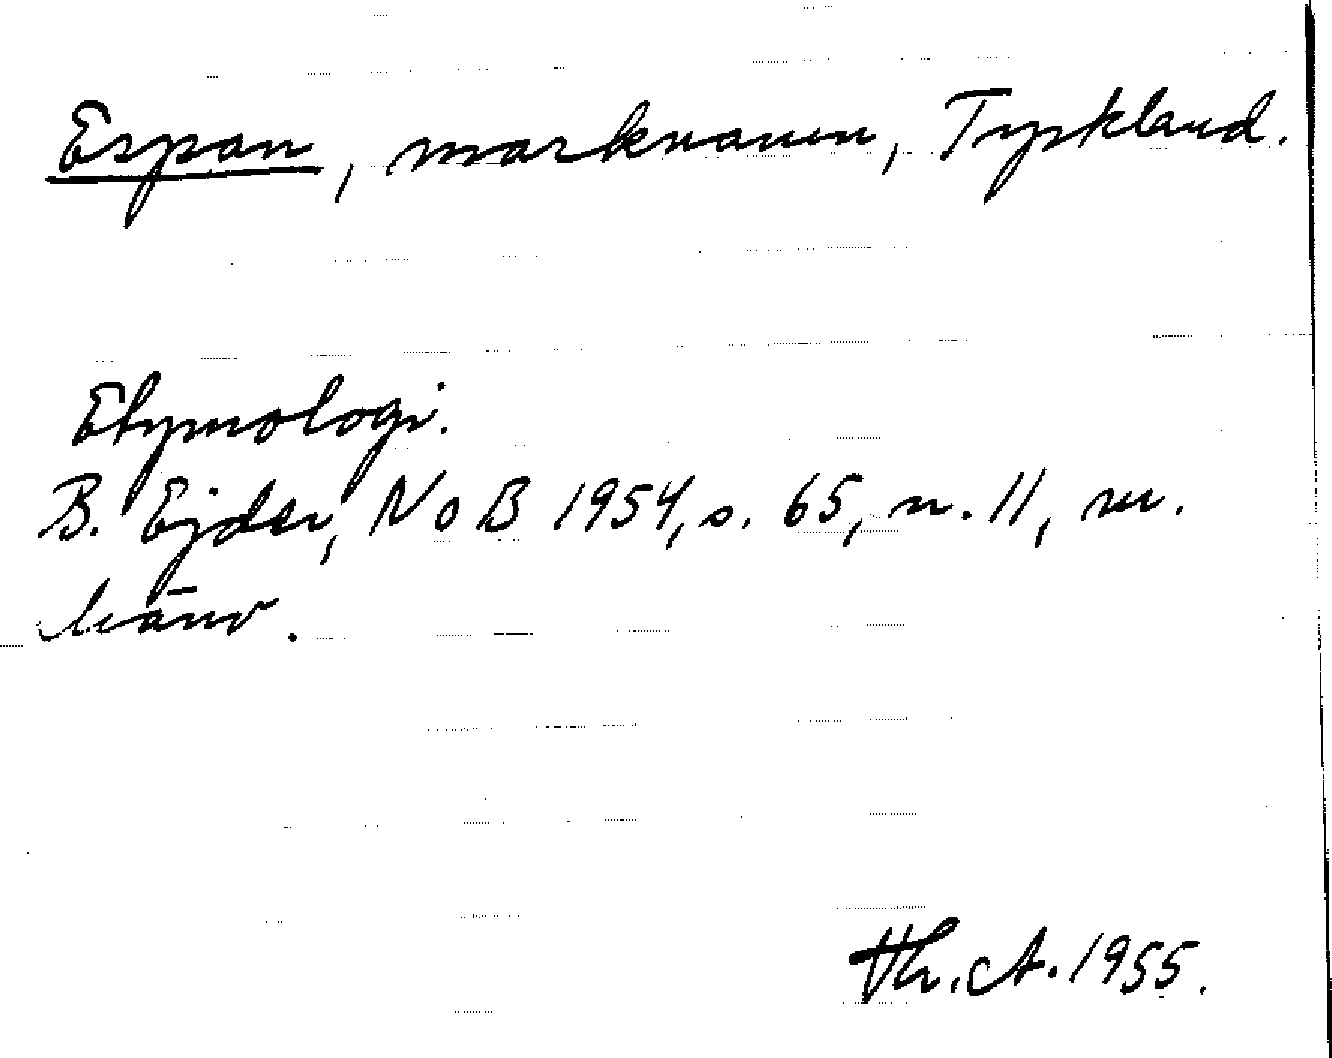 Espan, marknamn, Tyskland.
Etymologi.
B. Ejder, NoB 1954, s. 65, n. 11, m.
hänv.
Th. A. 1955.